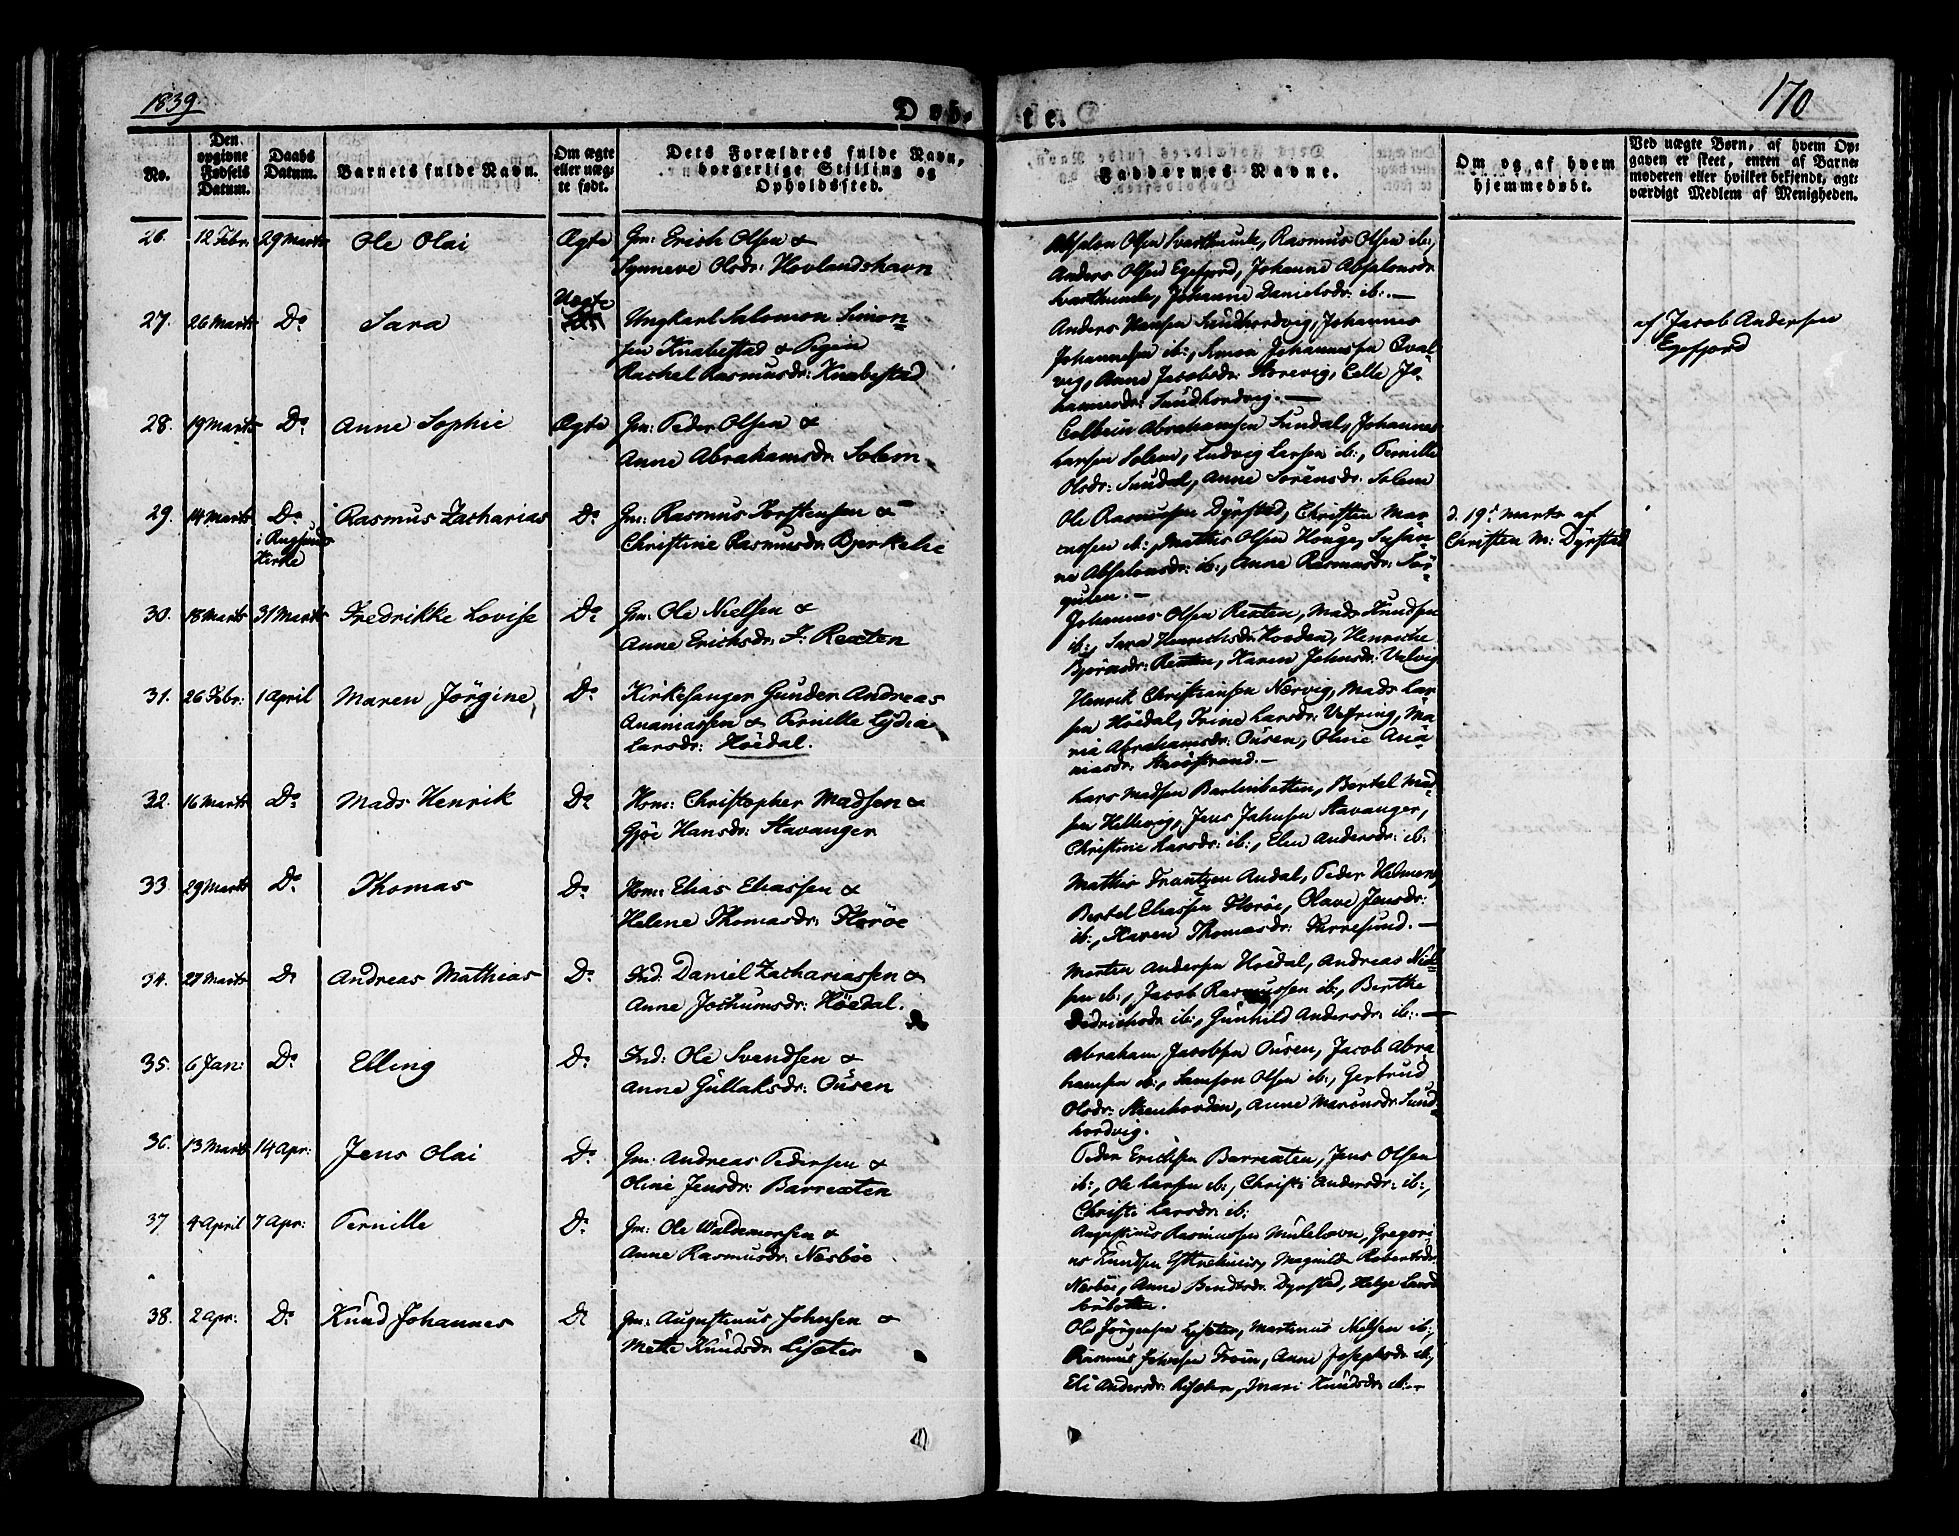 1839.
Døb-
te.
170
No.
Den opgivne Fødsels Datum.
Daabs Datum.
Barnets fulde Navn.
Om ægte eller uægte født.
Dets Forældres fulde Navn, borgerlige Stilling og Opholdssted.
Faddernes Navne.
Om og af hvem hjemmedøbt.
Ved uægte Børn, af hvem Opgaven er skeet, enten af Barnemoderen eller hvilket bekjendt, agtværdigt Medlem af Menigheden.
26. 12 Febr: 29 Marts Ole Olai Ægte Gm: Erich Olsen &
Synneve Olsdr: Hovlandshavn
Absalon Olsen Svarthumle, Rasmus Olsen ib:,
Anders Olsen Egefjord, Johanne Absalonsdr
Svarthumle, Johanne Danielsdr: ib: —
27. 26 Marts Do Sara Uægte Ungkarl Salomon Simon-
sen Knabestad & Pigen
Rachel Rasmusdr: Knabestad
Anders Hansen Sundhordvig, Johannes
Johannesen ib:, Simon Johannessen Qval-
vig, Anne Jacobsdr: Storevig, Celle Jo-
hannesdr: Sundhordvig. —
af Jacob Andersen
Egefjord
28. 19 Marts Do Anne Sophie Ægte Gm: Peder Olsen &
Anne Abrahamsdr. Solem
Colbein Abrahamsen Sundal, Johannes
Larsen Solem, Ludvig Larsen ib:, Pernille
Olsdr: Sundal, Anne Sörensdr: Solem
29. 14 Marts Do i Rugsunds Kirke Rasmus Zacharias Do Gm: Rasmus Torstensen &
Christine Rasmusdr: Bjerkelie
Ole Rasmussen Dyrstad, Christen Mar-
ib:, Mathis Olsen Houge, Susan-
ne Absalonsdr: ib:, Anne Rasmusdr:
d. 19de Marts af
Christen M: Dyrstad
30. 18 Marts 31 Marts Fredrikke Lovise Do Gm: Ole Nielsen &
Anne Erichsdr: I: Rexten
Johannes Olsen Rexten, Mads Knudsen
ib:, Sara Henrichsdr: Hovden, Henriche
Bjørnsdr: Rexten, Karen Johnsdr: Valvig
31. 26 Febr: 1 April Maren Jörgine Do Kirkesanger Gunder Andreas
Ananiassen & Pernille Lydia
Larsdr: Höidal.
Henrik Christiansen Nærvig, Mads Lar-
sen Höidal, Trine Larsdr: Vefring, Ma-
ria Abrahamsdr: Ousen, Oline Ana-
niasdr:
32. 16 Marts Do Mads Henrik Do Hm: Christopher Madsen &
Gjöe Hansdr: Stavanger
Lars Madsen Barlinbotten, Bertel Mad-
sen Hellevig, Jens Jahnsen Stavanger,
Christine Larsdr: ib:, Elen Andersdr: ib:
33. 29 Marts Do Thomas Do Hm: Elias Eliassen &
Helene Thomasdr: Floröe
Mathis Frantzen Andal, Peder
Bertel Eliassen Floröe, Olave Jensdr:
ib:, Karen Thomasdr: Furresund. —
34. 27 Marts Do Andreas Mathias Do Ind. Daniel Zachariassen &
Anne Jochumsdr: Höidal.
Morten Andersen Höidal, Andreas Niel-
sen ib:, Jacob Rasmussen ib:, Berthe
Didrichsdr ib:, Gunhild Andersdr: ib: —
35. 6 Jan: Do Elling Do Ind: Ole Svendsen &
Anne Gullaksdr: Ousen
Abraham Jacobsen Ousen, Jacob Abra-
hamsen ib:, Samson Olsen ib:, Gertrud
Olsdr: Steenhovden, Anne Maronsdr: Sund-
hordvig.
36. 13 Marts 14 Apr: Jens Olai Do Gm: Andreas Pedersen &
Oline Jensdr: Barrexten
Peder Erichsen Barrexten, Jens Olsen
ib:, Ole Larsen ib:, Christi Andersdr: ib:,
Christi Larsdr: ib:
37 4 April 7 Apr: Pernille Do Gm: Ole Waldemorsen &
Anne Rasmusdr: Nesböe
Augustinus Rasmussen Mulehavn, Gregori-
us Knudsen Ytrehuus, Magnilda Robertsdr:
Nesböe, Anne Bendtsdr: Dyrstad, Helge Larsdr
38. 2 Apr: Do Knud Johannes Do Gm: Augustinus Johnsen &
Mette Knudsdr. Liseter
Ole Jörgensen Liseter, Martinus Nielsen ib:,
Rasmus Johnsen Troin, Anne Josephsdr: ib:,
Eli Andersdr: Riseten, Mari Knudsdr: ib: —